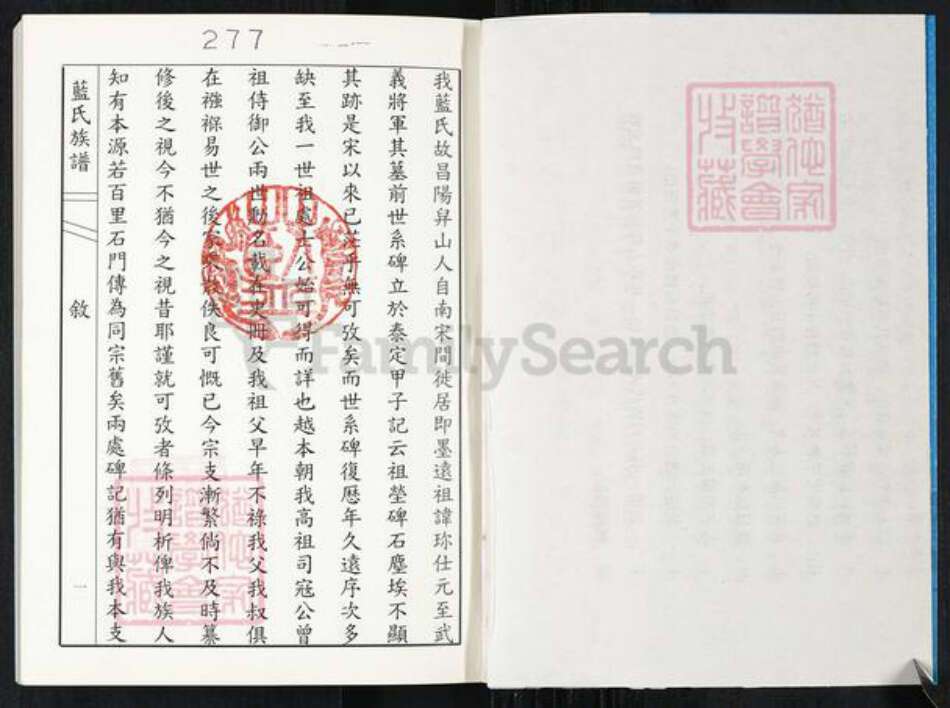 277
我藍氏故昌陽舁山人自南宋間徙居即墨遠祖諱珎仕元至武
義將軍其墓前世系碑立於泰定甲子記云祖塋碑石塵埃不顯
其跡是宋以來已茫乎無可攷矣而世系碑復歷年久遠序次多
缺至我一世祖處士公始可得而詳也越本朝我高祖司寇公曾
祖侍御公兩世勳名載在史冊及我祖父早年不祿我父我叔俱
在襁褓易世之後家乘散佚良可慨已今宗支漸繁倘不及時纂
修後之視今不猶今之視昔耶謹就可攷者條列明析俾我族人
知有本源若百里石門傳為同宗舊矣兩處碑記猶有與我本支
藍氏族譜
敘
一
FamilySearch
譜學會
收藏